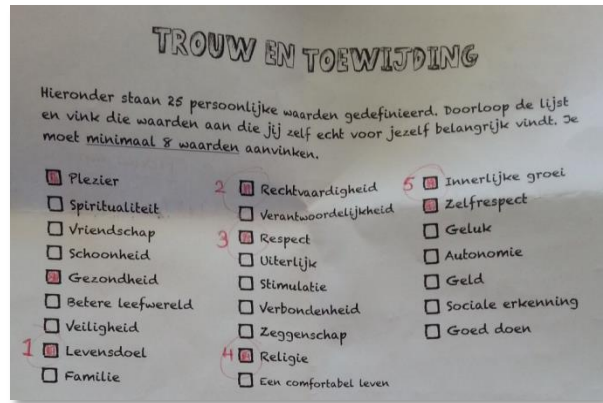 TROUW EN TOEWIJDING
Hieronder staan 25 persoonlijke waarden gedefinieerd. Doorloop de lijst
en vink die waarden aan die jij zelf echt voor jezelf belangrijk vindt. Je
moet minimaal 8 waarden aanvinken.
Plezier
Spiritualiteit
Vriendschap
Schoonheid
Gezondheid
Betere leefwereld
Veiligheid
1 Levensdoel
Familie
2 Rechtvaardigheid
Verantwoordelijkheid
3 Respect
Uiterlijk
Stimulatie
Verbondenheid
Zeggenschap
4 Religie
Een comfortabel leven
5 Innerlijke groei
Zelfrespect
Geluk
Autonomie
Geld
Sociale erkenning
Goed doen